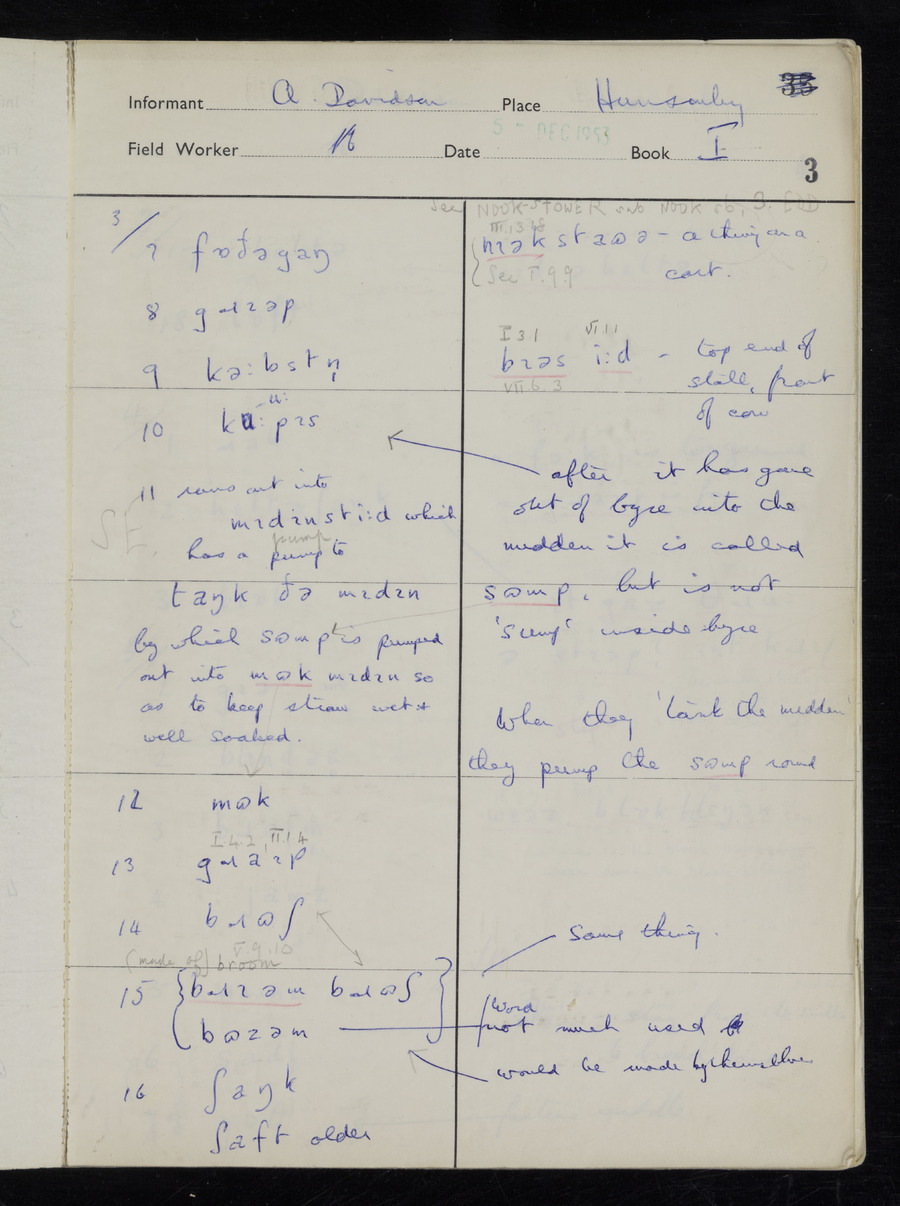 Informant A. Davidson Place Hunsonby
Field Worker Date 5 - DEC 1953 Book I
3
3/
7 fɒðəgaŋ
8 gɹɪəp
9 kə:bstn̩
10 ku:pɪs
u:
11 runs out into
mɪdɪnsti:d which
has a pump to
pump
taŋk ðə mɪdɪn
by which sɷmp is pumped
out into mɷk mɪdɪn so
as to keep straw wet &
well soaked.
12 mɷk
I.4.2, II.1.4
13 gɹaɪp
14 bɹɷʃ
(made of) broom V.9.10
15 bɹɪəm bɹɷʃ
bɷzəm
16 ʃaŋk
ʃaft older
See NOOK-STOWER and NOOK sb, 3. EDD
III.13.18
nɪək staɷə - a thing on a
See I.9.9
cart.
I 3.1 VI.1.1
bɪəs i:d - top end of
VII.6.3
stall, front
of cow
after it has gone
out of byre into the
midden it is called
sɷmp, but is not
'sump' inside byre
When they 'tank the midden'
they pump the sɷmp round
Same thing.
word
not much used
would be made by themselves